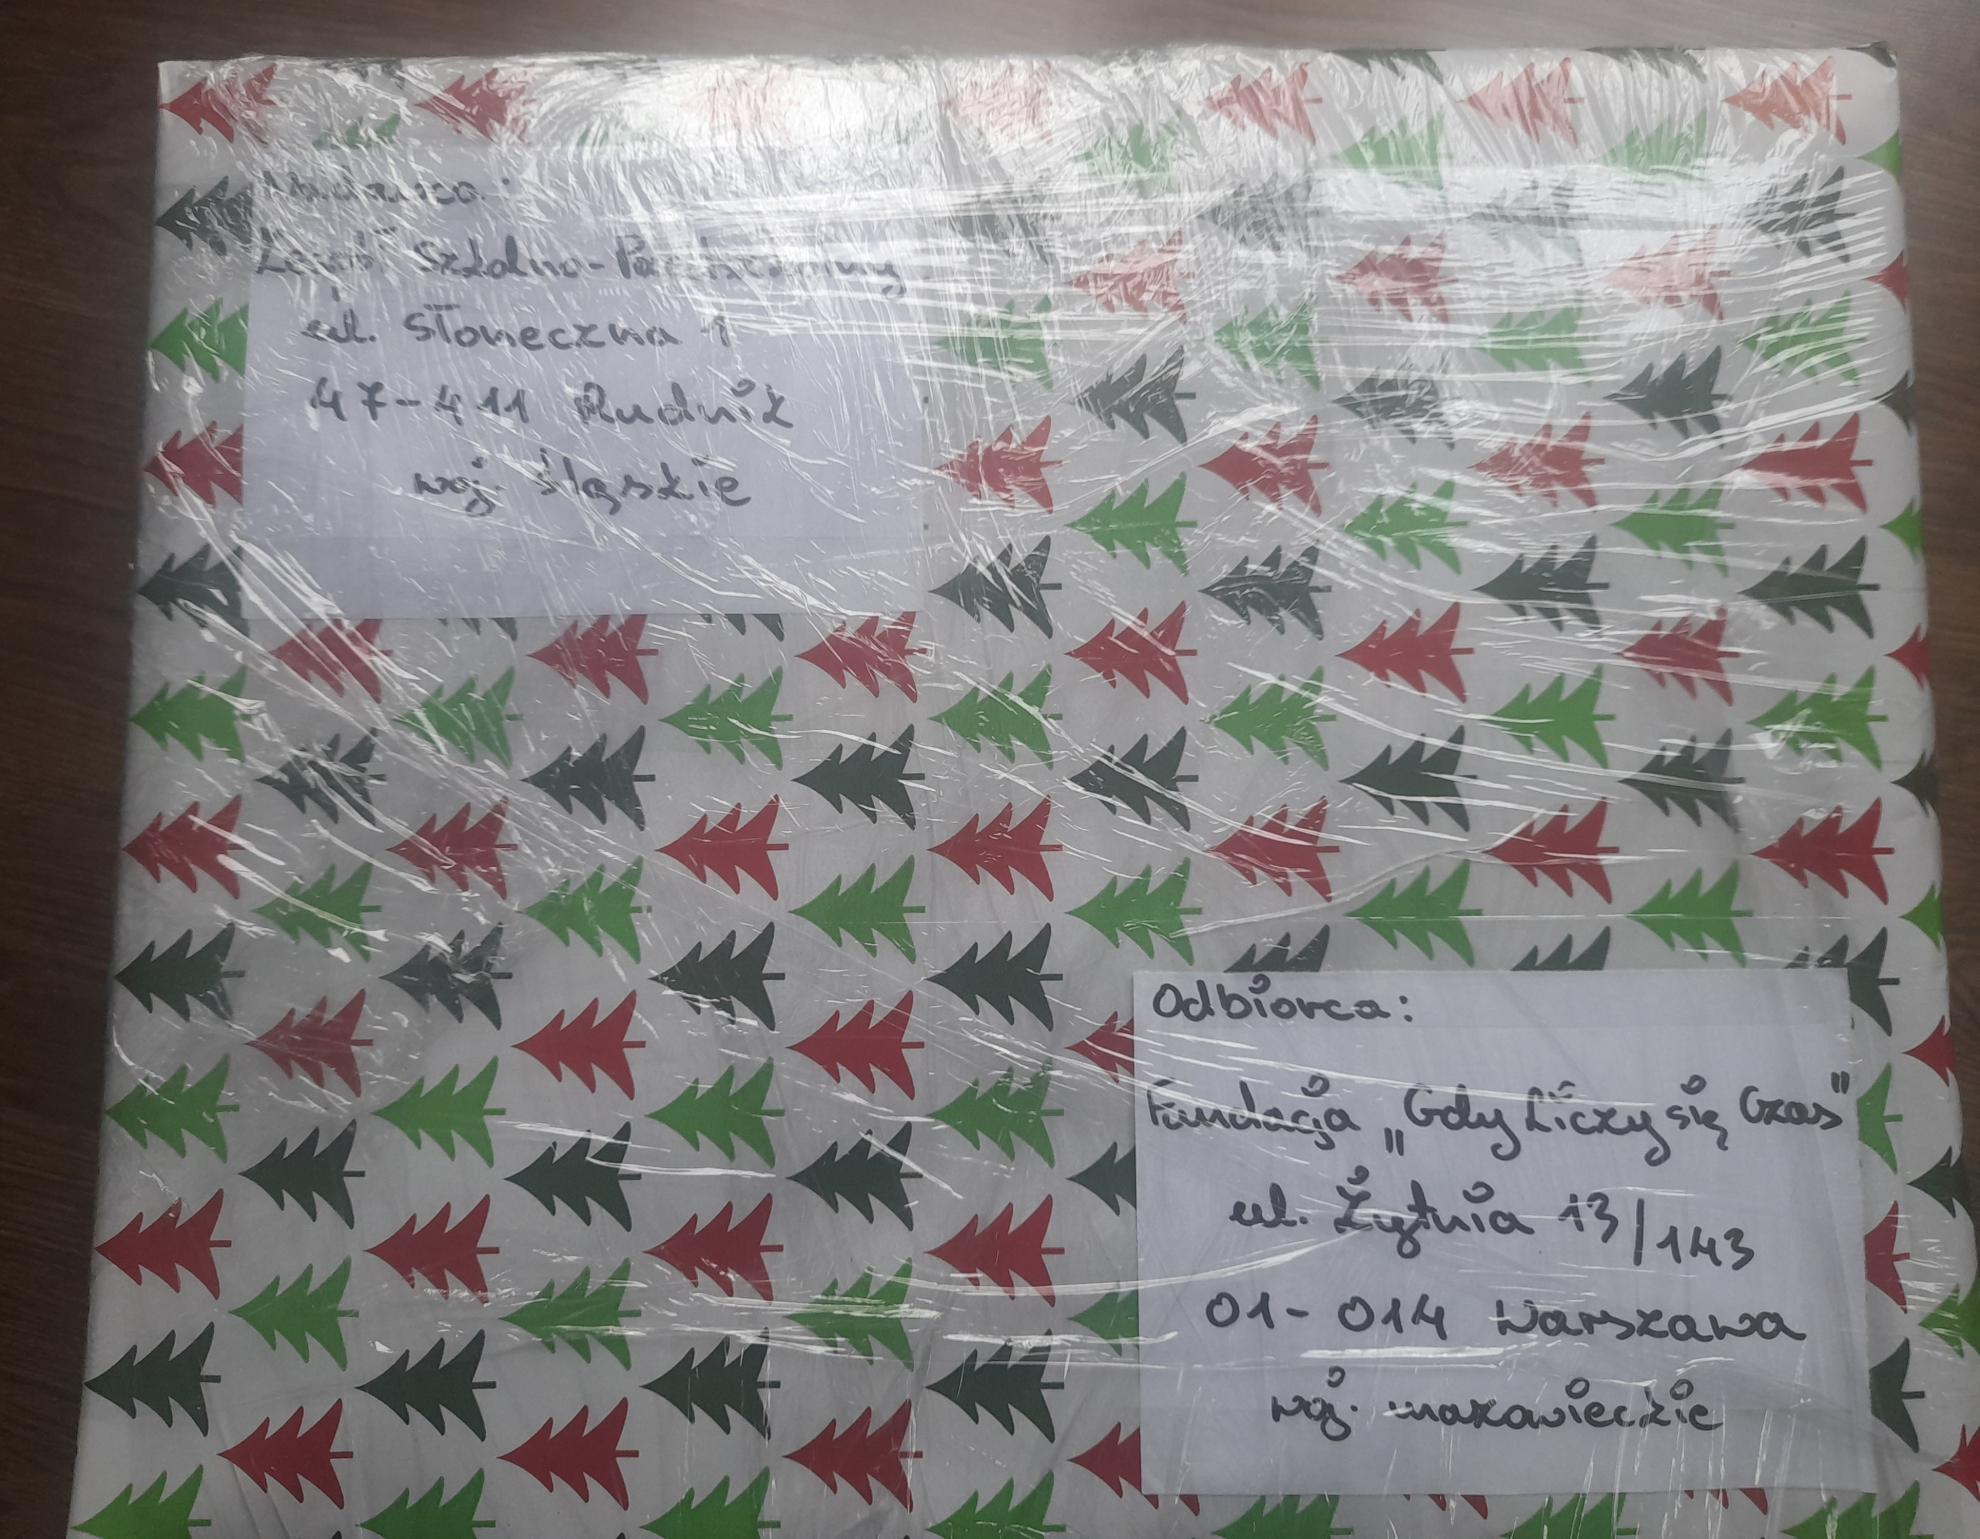 Nadawca:
Zespół Szkolno-Przedszkolny
ul. Słoneczna 1
47-411 Rudnik
woj. śląskie
Odbiorca:
Fundacja „Gdy Liczy się Czas"
ul. Żytnia 13/143
01-014 Warszawa
woj. mazowieckie